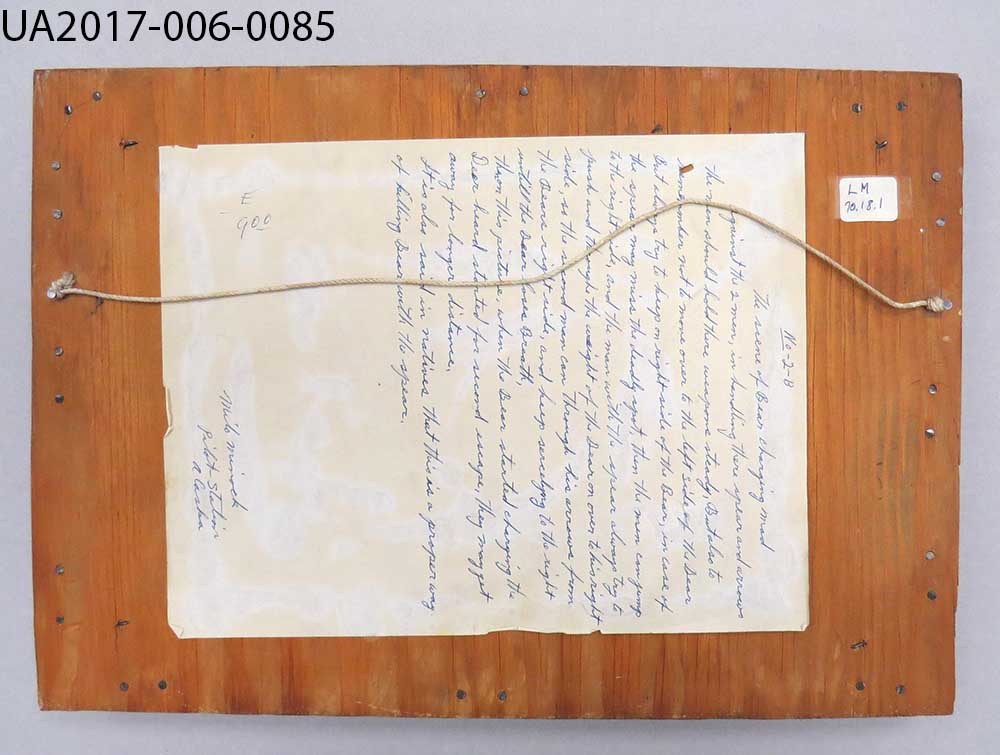 UA2017-006-0085
LM
70.18.1
No-2-B
The scene of Bear charging mad
against the 2 men, in handling there spear and arrows
The man should hold there weapons steady, But also to
remember not to move over to the left side of the Bear
But always try to keep on right side of the Bear, in case of
the spear may miss the deadly spot, then the man can jump
to the right side, and the man with the spear always try to
push and the weight of the Bear on over to his right
side, so the second man can through his arrows from
the Bears right side, and keep to the right
untill the Bear lose Breath,
Then this picture, when the Bear started charging the
Bear head started for second escape, They might
away for longer distance,
It is also said in natives that this is a proper way
of killing Bear with the spear.
Milo Minock
Pilot Station
Alaska
E
900